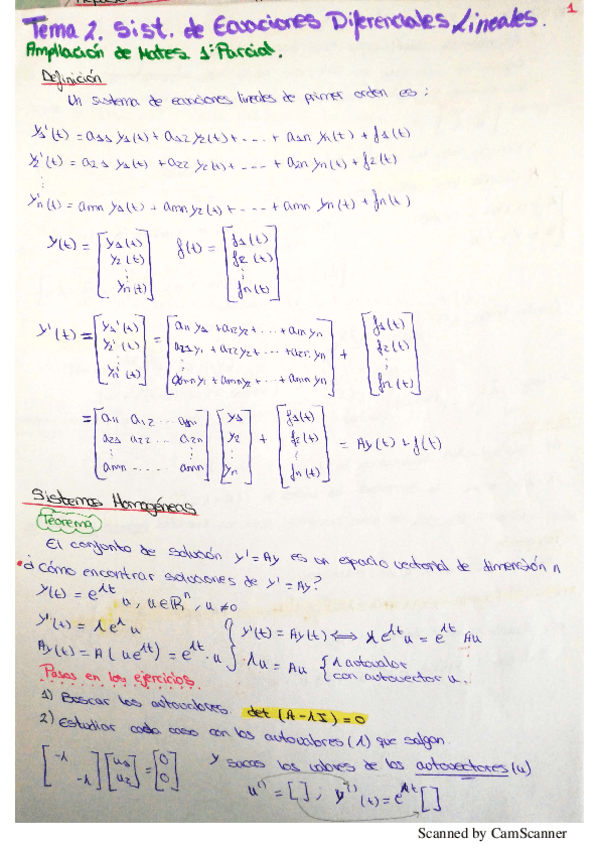 1
Tema 2. Sist. de Ecuaciones Diferenciales Lineales.
Ampliación de Mates. 1º Parcial.
Definición
Un sistema de ecuaciones lineales de primer orden es:
y1'(t) = a11 y1(t) + a12 y2(t) + ... + a1n yn(t) + f1(t)
y2'(t) = a21 y1(t) + a22 y2(t) + ... + a2n yn(t) + f2(t)
⋮
yn'(t) = amn y1(t) + amn y2(t) + ... + amn yn(t) + fn(t)
y(t) = [y1(t) y2(t) ⋮ yn(t)] f(t) = [f1(t) f2(t) ⋮ fn(t)]
y'(t) = [y1'(t) y2'(t) ⋮ yn'(t)] = [a11 y1 + a12 y2 + ... + a1n yn a21 y1 + a22 y2 + ... + a2n yn ⋮ amn y1 + amn y2 + ... + amn yn] + [f1(t) f2(t) ⋮ fn(t)]
= [a11 a12 ... a1n a21 a22 ... a2n ⋮ amn ... amn] [y1 y2 ⋮ yn] + [f1(t) f2(t) ⋮ fn(t)] = Ay(t) + f(t)
Sistemas Homogéneas
Teorema
El conjunto de solución y' = Ay es un espacio vectorial de dimensión n
¿Cómo encontrar soluciones de y' = Ay?
y(t) = e^λt u, u ∈ ℝ^n, u ≠ 0
y'(t) = λe^λ u { y'(t) = Ay(t) ⟺ λe^λt u = e^λt Au
Ay(t) = A(ue^λt) = e^λt · u } · λu = Au { λ autovalor
con autovector u.
Pasos en los ejercicios
1) Buscar los autovalores. det (A - λI) = 0
2) Estudiar cada caso con los autovalores (λ) que salgan.
[-λ -λ] [u1 u2] = [0 0] y sacas los valores de los autovectores (u)
u^() = [ ] ; y^()(t) = e^λt [ ]
Scanned by CamScanner